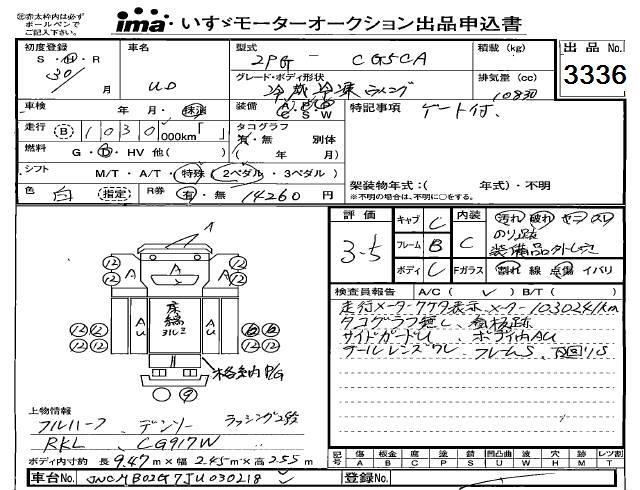 ㊟赤太枠内は必ず
ボールペンで
ご記入下さい。
ima・いすゞモーターオークション出品申込書
初度登録
S・H・R
30/ 月
車名
UD
型式
2PG - CG5CA
グレード・ボディ形状
冷蔵冷凍ウイング
積載 (kg)
排気量 (cc)
10830
出品No.
3336
車検
年 月・抹消
装備
A・P・P
C・S・W
特記事項
ゲート付、
走行
B 1030 000km「 」
タコグラフ
有・無 別体
( 年 月)
燃料
G・D・HV 他( )
シフト
M/T・A/T・特殊(2ペダル・3ペダル)
色
白 指定
R券
有・無 14260円
架装物年式:( 年式)・不明
※不明の場合は、不明に〇をする。
評価
3.5
キャブ C
フレーム B
ボディ C
内装
C
Fガラス
汚れ 破れ セコ スレ
のり跡
装備品外し穴
割れ 線 点傷 イバリ
検査員報告 A/C( ✓ ) B/T( )
走行メーター779表示 メーター1030241km
タコグラフ無し、看板跡
サイドガードU、ボディ内AU
テールレンズワレ、フレームS、下回りS
1
12 12 A A A 12 12
AU 床 縞 ヨルミ AU
12 12 12 12
格納P/G
9
上物情報
フルハーフ デンソー ラッシング2段
RKL CG917W
ボディ内寸約 長 9.47m × 幅 2.45m × 高 2.55m
記号 傷 板金 腐 塗 錆 凹凸曲 波 穴 跡 レツ割
A B C P S U W H M T
車台No. JNCMB02G7JU030218
登録No.